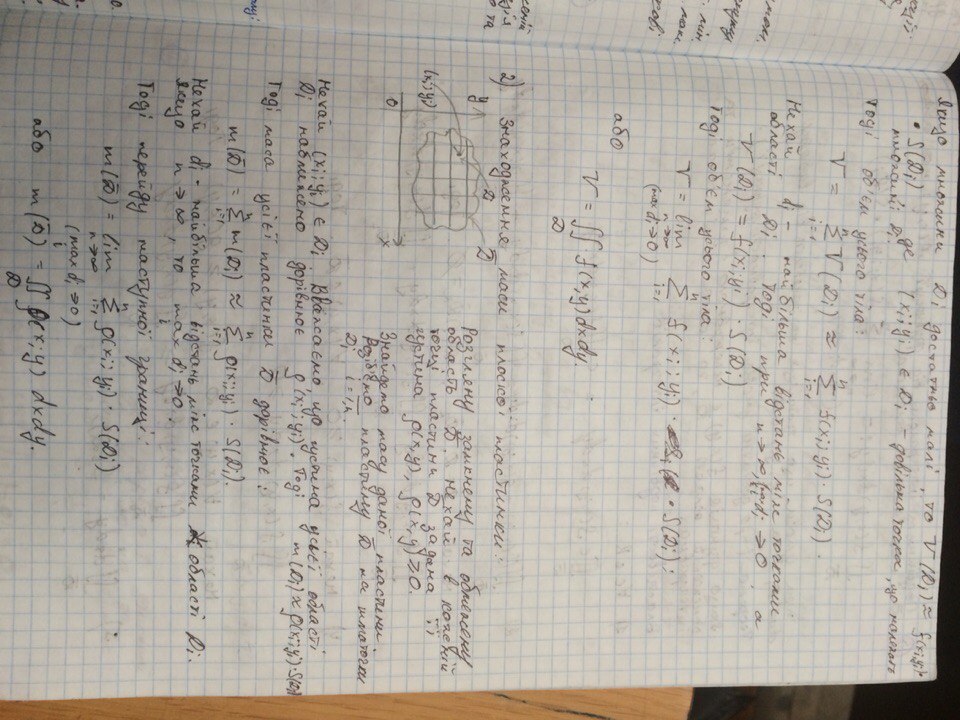 Якщо множини Di достатньо малі, то V(Di) ≈ f(xi;yi)·
· S(Di), де (xi;yi) ∈ Di – довільна точка, що належать
множині Di.
Тоді об'єм усього тіла:
V = ∑ⁿᵢ₌₁ V(Di) ≈ ∑ⁿᵢ₌₁ f(xi;yi)·S(Di).
Нехай di – найбільша відстань між точками
області Di. Тоді при n→∞, (max di →0) а
V(Di) = f(xi;yi)·S(Di)
Тоді об'єм усього тіла:
V = lim ∑ⁿᵢ₌₁ f(xi;yi) · S(Di);
n→∞
(max di→0)
або
V = ∬ f(x,y)dxdy.
D
2) Знаходження маси плоскої пластинки:
y
Di
D̄
(xi;yi)
0
x
Розгляну замкнену та обмежену
область D̄. Нехай в кожній
точці пластини D̄ задана її
густина ρ(x,y), ρ(x,y)≥0.
Знайдемо масу даної пластини.
Розіб'ємо пластину D̄ на шматочки
Di i=1,n.
Нехай (xi;yi) ∈ Di Вважаємо, що густина усієї області
Di наближено дорівнює ρ(xi;yi). Тоді m(Di)≈ρ(xi;yi)·S(Di)
Тоді маса усієї пластинки D̄ дорівнює:
m(D̄) = ∑ⁿᵢ₌₁ m(Di) ≈ ∑ⁿᵢ₌₁ ρ(xi;yi) · S(Di).
Нехай di – найбільша відстань між точками області Di.
Якщо n→∞, то max di→0.
i
Тоді перейду наступної границі:
m(D̄) = lim ∑ⁿᵢ₌₁ ρ(xi;yi) · S(Di)
n→∞
(max di→0)
i
або m(D̄) = ∬ ρ(x;y) dxdy.
D